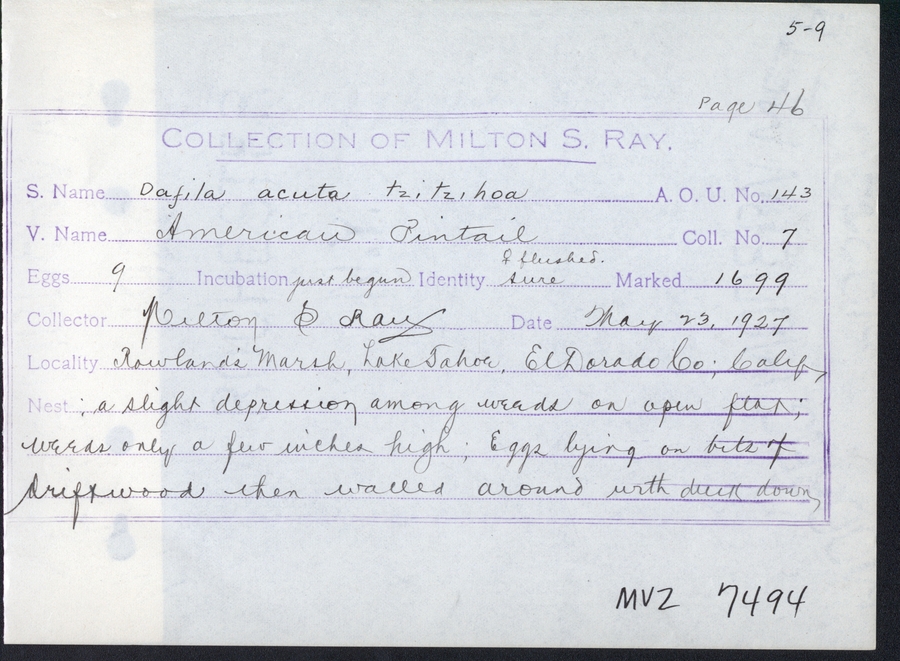 5-9
Page 46
COLLECTION OF MILTON S. RAY.
S. Name Dafila acuta tzitzihoa A. O. U. No. 143
V. Name American Pintail Coll. No. 7
♀ flushed.
Eggs 9 Incubation just begun Identity sure Marked 16 99
Collector Milton S Ray Date May 23, 1927
Locality Rowland's Marsh, Lake Tahoe, El Dorado Co; Calif,
Nest ; a slight depression among weeds on open flat;
weeds only a few inches high; Eggs lying on bits of
driftwood then walled around with duck down,
MVZ 7494